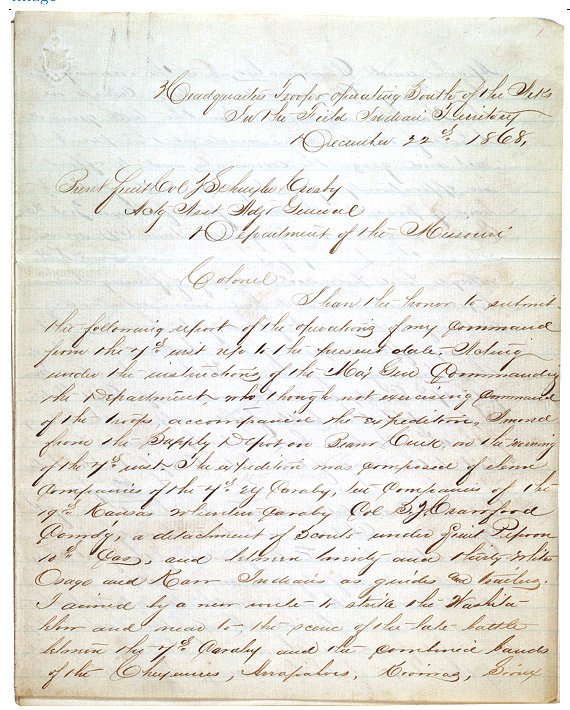 Headquarters Troops operating South of the Arks
In the Field Indian Territory
December 22d, 1868,
Brevt Lieut Col J Schuyler Crosby
Actg Asst Adjt General
Department of the Missouri
Colonel
I have the honor to submit
the following report of the operations of my command
from the 7th inst up to the present date. Acting
under the instructions of the Maj Genl Commanding
the Department, who though not exercising command
of the troops, accompanied the expedition, I moved
from the Supply Depot on Beaver Creek, on the morning
of the 7th inst The expedition was composed of eleven
companies of the 7th U.S. Cavalry, ten companies of the
19th Kansas volunteer Cavalry Col S.J. Crawford
Comdg, a detachment of Scouts under Lieut Pepoon
10th Cav, and between twenty and thirty whites
Osage and Kaw Indians as guides and trailers.
I aimed by a new route to strike the Washita
near to, the scene of the late battle
between the 7th Cavalry and the combined bands
of the Cheyennes, Arrapahoes, Kiowas, Sioux